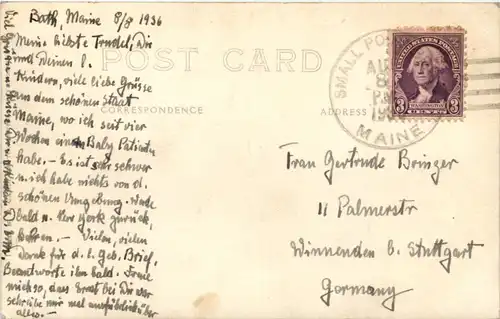 Bath, Maine 8/8 1936
Meine liebste Trudel, Dir
und Deinen l.
Kindern, viele liebe Grüsse
aus dem schönen Staat
Maine, wo ich seit vier
Wochen einen Baby Patienten
habe. - Es ist sehr schwer
u. ich habe nichts von d.
schönen Umgebung. Werde
bald n. New York zurück,
kehren. - Vielen, vielen
Dank für d. l. Geb. Brief.
Beantworte ihn bald. Freue
mich so, dass Ernst bei Dir war
schreibe mir mal ausführlich über
alles. -
POST CARD
CORRESPONDENCE
ADDRESS
SMALL PO
AUG
8
P.M.
19
MAINE
UNITED STATES POSTAGE
WASHINGTON
3 CENTS 3
Frau Gertrude Bringer
11 Palmerstr
Winnenden b. Stuttgart
Germany